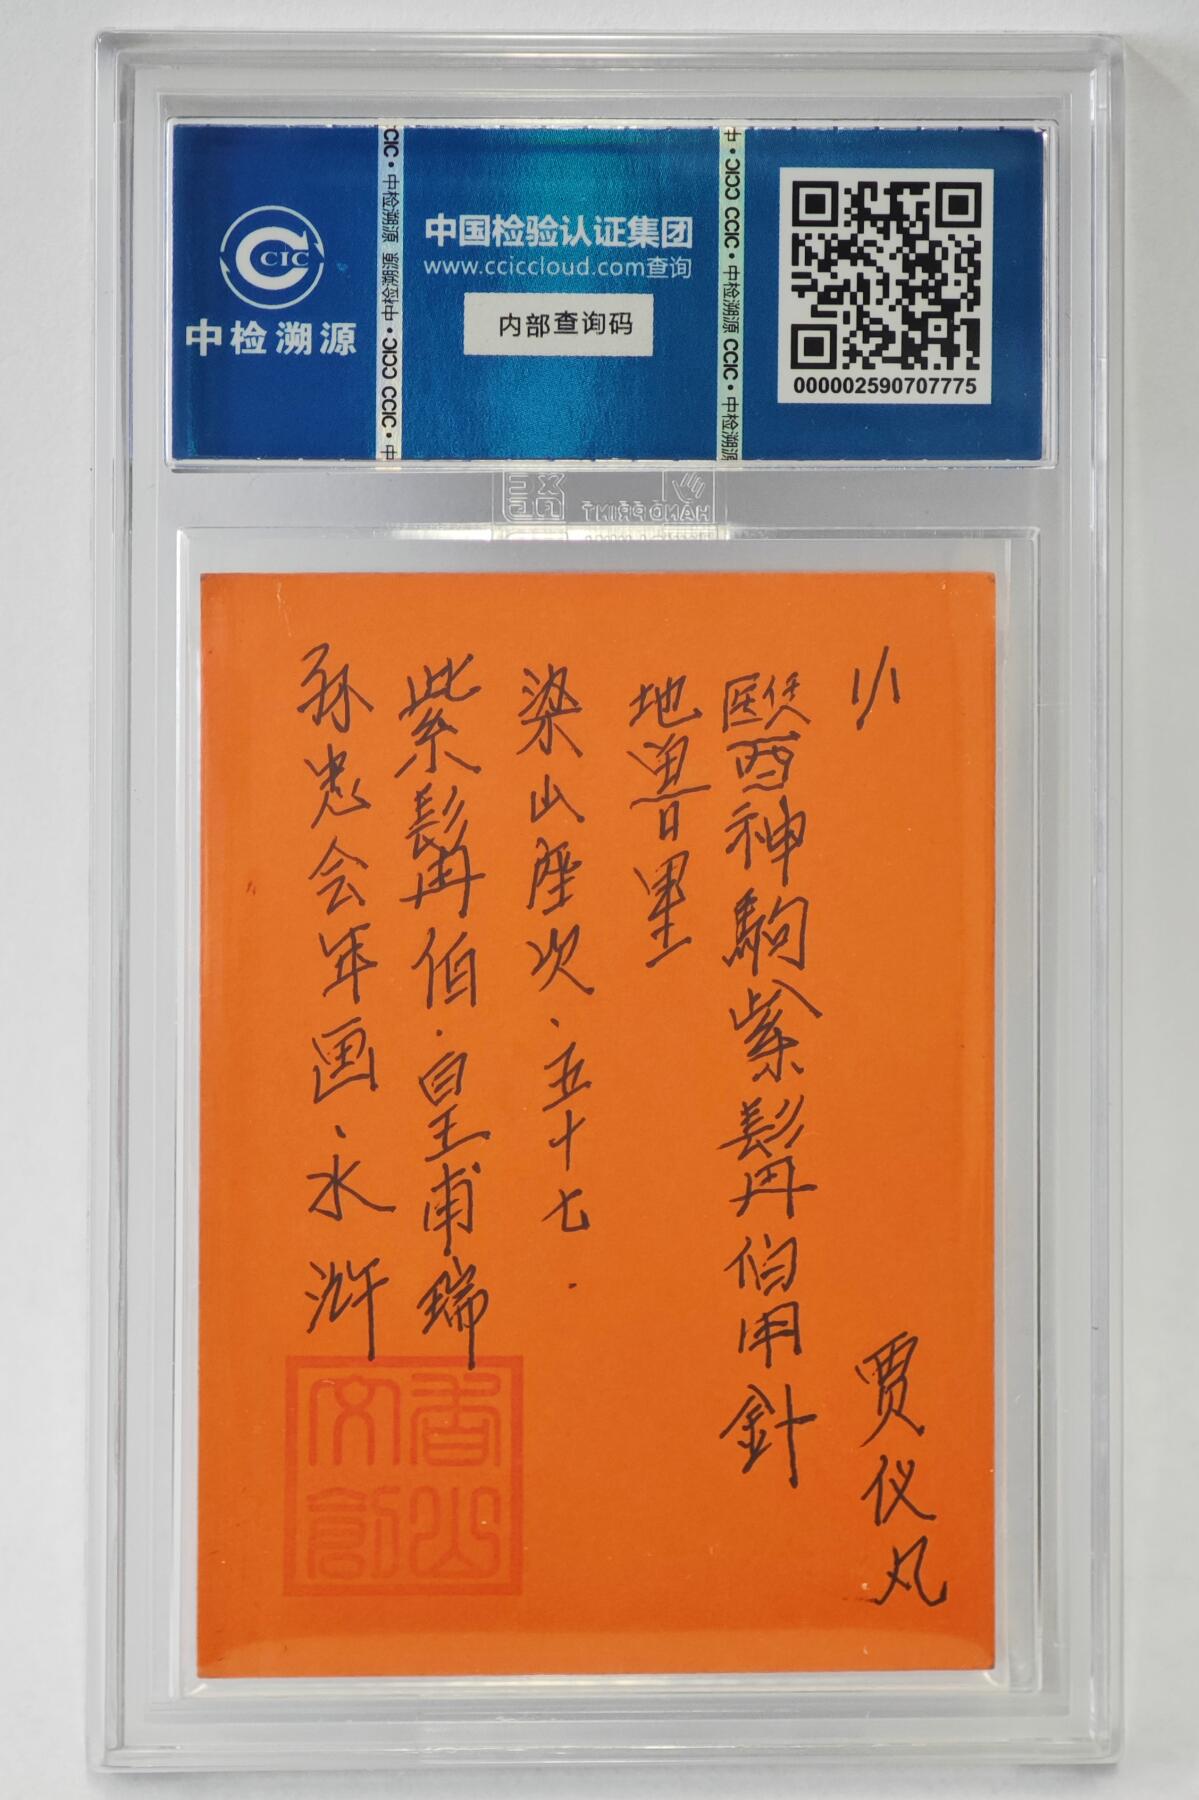 CCIC
中检溯源
CCIC·中检溯源 中检溯源·CCIC CCIC·中
中国检验认证集团
www.cciccloud.com查询
内部查询码
中·CCIC CCIC·中检溯源 CCIC·中检溯源
000002590707775
HAND PRINT
1/1
贾仪凡
医兽神駒紫髯伯用針
地兽星
梁山座次·五十七·
紫髯伯·皇甫瑞
孙忠会年画·水浒
香山
文創